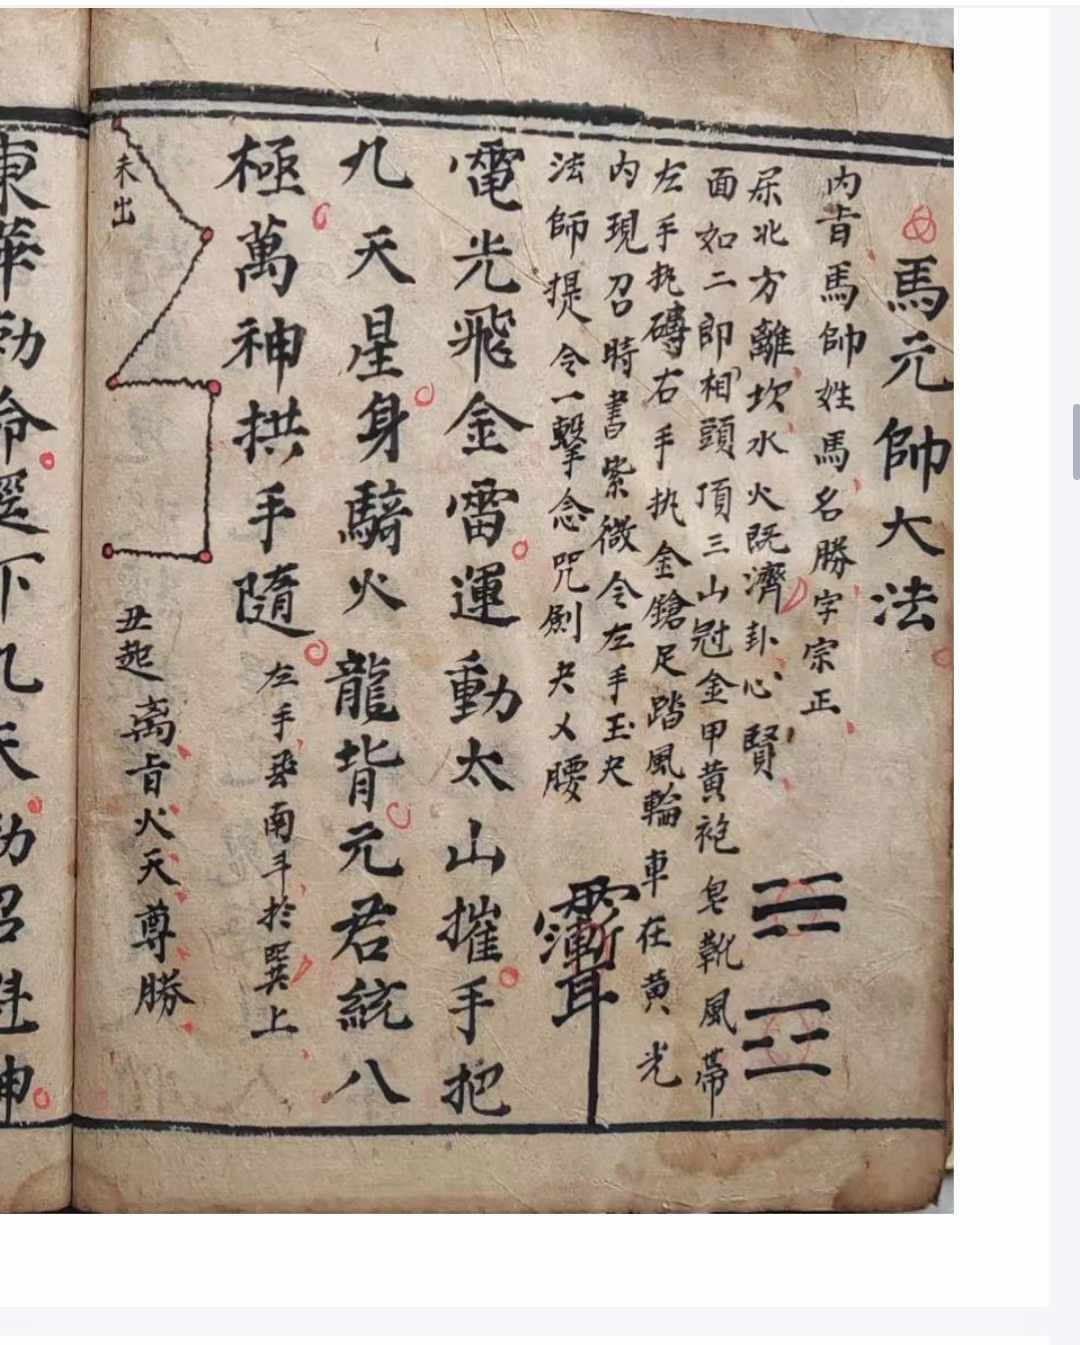 馬元帥大法
内旨馬帥姓馬名勝字宗正
北方離坎水火既濟卦心賢
面如二郎相頭頂三山冠金甲黄袍皂靴風帶
左手执磚右手执金鎗足踏風輪車在黄光
内現召時書紫微令左手玉
法師提令一擊念咒劍腰
電光飛金雷運動太山摧手把
九天星身騎火龍背元君統八
極萬神拱手隨
左手南斗於巽上
未出
丑起
离旨火天尊勝
東華勅命
下九天